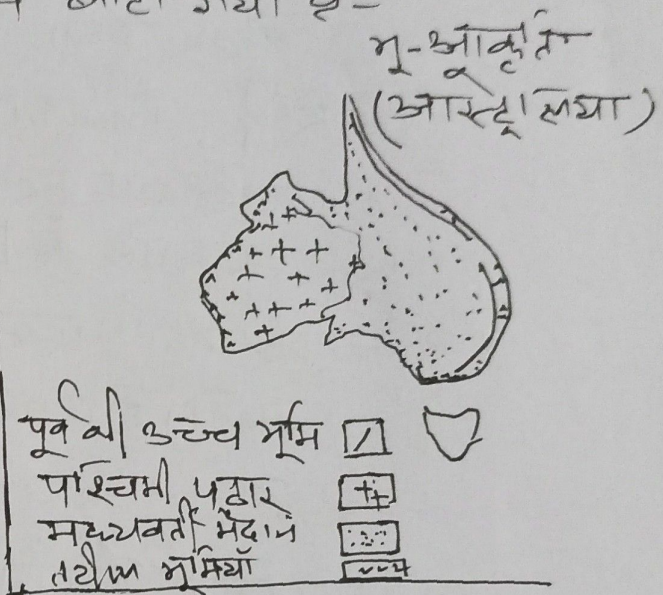 में बाँटा गया है-
भू-आकृति
(आस्ट्रेलिया)
पूर्व की उच्च भूमि
पश्चिमी पठार
मध्यवर्ती मैदान
तटीय भूमियाँ